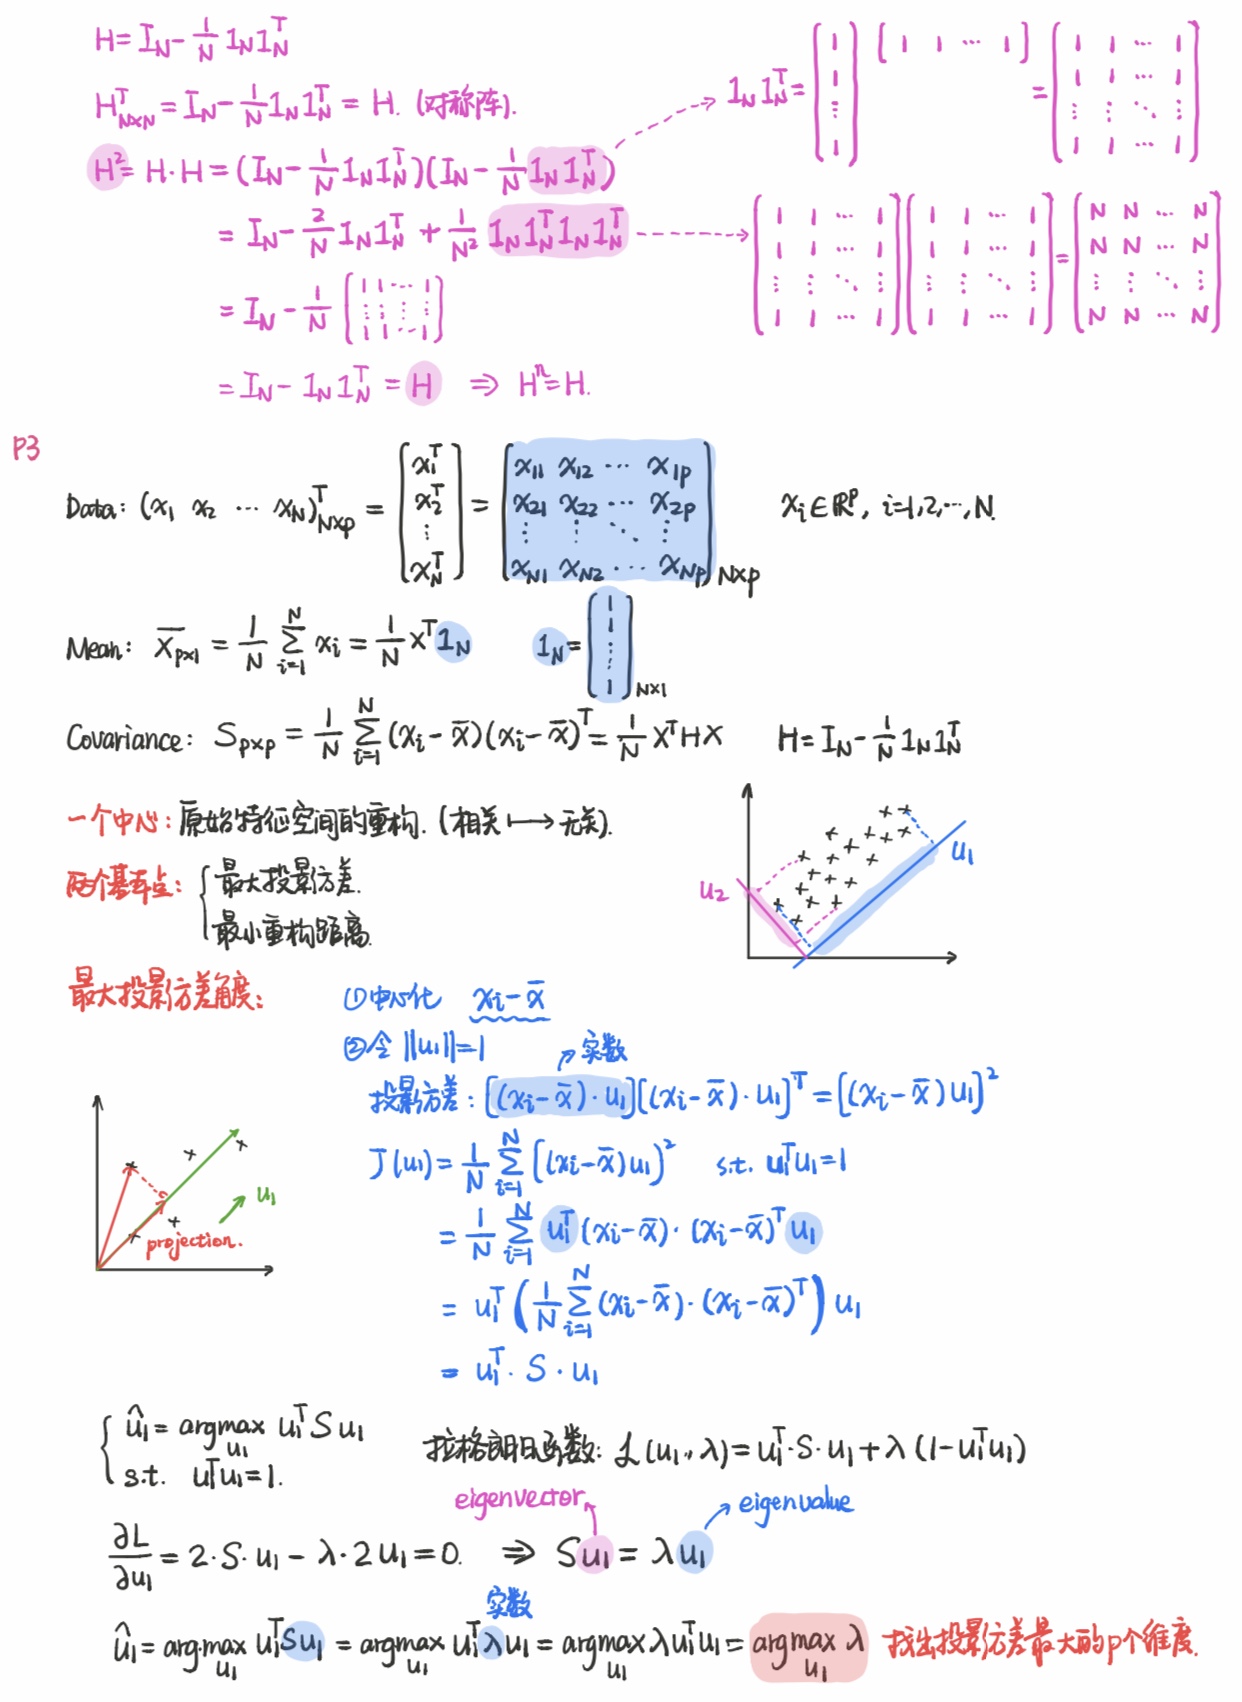 H = I_N - 1/N 1_N 1_N^T
H_{N×N}^T = I_N - 1/N 1_N 1_N^T = H. (对称阵).
1_N 1_N^T = [1 1 ⋮ 1] [1 1 ⋯ 1] = [1 1 ⋯ 1; 1 1 ⋯ 1; ⋮ ⋮ ⋱ ⋮; 1 1 ⋯ 1]
H^2 = H·H = (I_N - 1/N 1_N 1_N^T)(I_N - 1/N 1_N 1_N^T)
= I_N - 2/N 1_N 1_N^T + 1/N^2 1_N 1_N^T 1_N 1_N^T
[1 1 ⋯ 1; 1 1 ⋯ 1; ⋮ ⋮ ⋱ ⋮; 1 1 ⋯ 1] [1 1 ⋯ 1; 1 1 ⋯ 1; ⋮ ⋮ ⋱ ⋮; 1 1 ⋯ 1] = [N N ⋯ N; N N ⋯ N; ⋮ ⋮ ⋱ ⋮; N N ⋯ N]
= I_N - 1/N [1 1 ⋯ 1; ⋮ ⋮ ⋮ ⋮; 1 1 ⋯ 1]
= I_N - 1_N 1_N^T = H ⇒ H^n = H.
P3
Data: (x_1 x_2 ⋯ x_N)^T_{N×p} = [x_1^T; x_2^T; ⋮; x_N^T] = [x_11 x_12 ⋯ x_1p; x_21 x_22 ⋯ x_2p; ⋮ ⋮ ⋱ ⋮; x_N1 x_N2 ⋯ x_Np]_{N×p} x_i ∈ ℝ^p, i=1,2,⋯,N.
Mean: X̄_{p×1} = 1/N Σ_{i=1}^N x_i = 1/N X^T 1_N 1_N = [1 1 ⋮ 1]_{N×1}
Covariance: S_{p×p} = 1/N Σ_{i=1}^N (x_i - x̄)(x_i - x̄)^T = 1/N X^T H X H = I_N - 1/N 1_N 1_N^T
一个中心: 原始特征空间的重构. (相关 ↦ 无关).
两个基本点: { 最大投影方差.
最小重构距离.
u_2
u_1
最大投影方差角度:
①中心化 x_i - x̄
②令 ||u_1|| = 1
实数
投影方差: [(x_i - x̄)·u_1][(x_i - x̄)·u_1]^T = [(x_i - x̄)u_1]^2
J(u_1) = 1/N Σ_{i=1}^N [(x_i - x̄)u_1]^2 s.t. u_1^T u_1 = 1
= 1/N Σ_{i=1}^N u_1^T (x_i - x̄)·(x_i - x̄)^T u_1
= u_1^T (1/N Σ_{i=1}^N (x_i - x̄)·(x_i - x̄)^T) u_1
= u_1^T · S · u_1
u_1
projection.
{ û_1 = argmax_{u_1} u_1^T S u_1
s.t. u_1^T u_1 = 1.
拉格朗日函数: L(u_1, λ) = u_1^T · S · u_1 + λ(1 - u_1^T u_1)
eigenvector
eigenvalue
∂L/∂u_1 = 2·S·u_1 - λ·2u_1 = 0. ⇒ S u_1 = λ u_1
实数
û_1 = argmax_{u_1} u_1^T S u_1 = argmax_{u_1} u_1^T λ u_1 = argmax_{u_1} λ u_1^T u_1 = argmax_{u_1} λ 找出投影方差最大的p个维度.